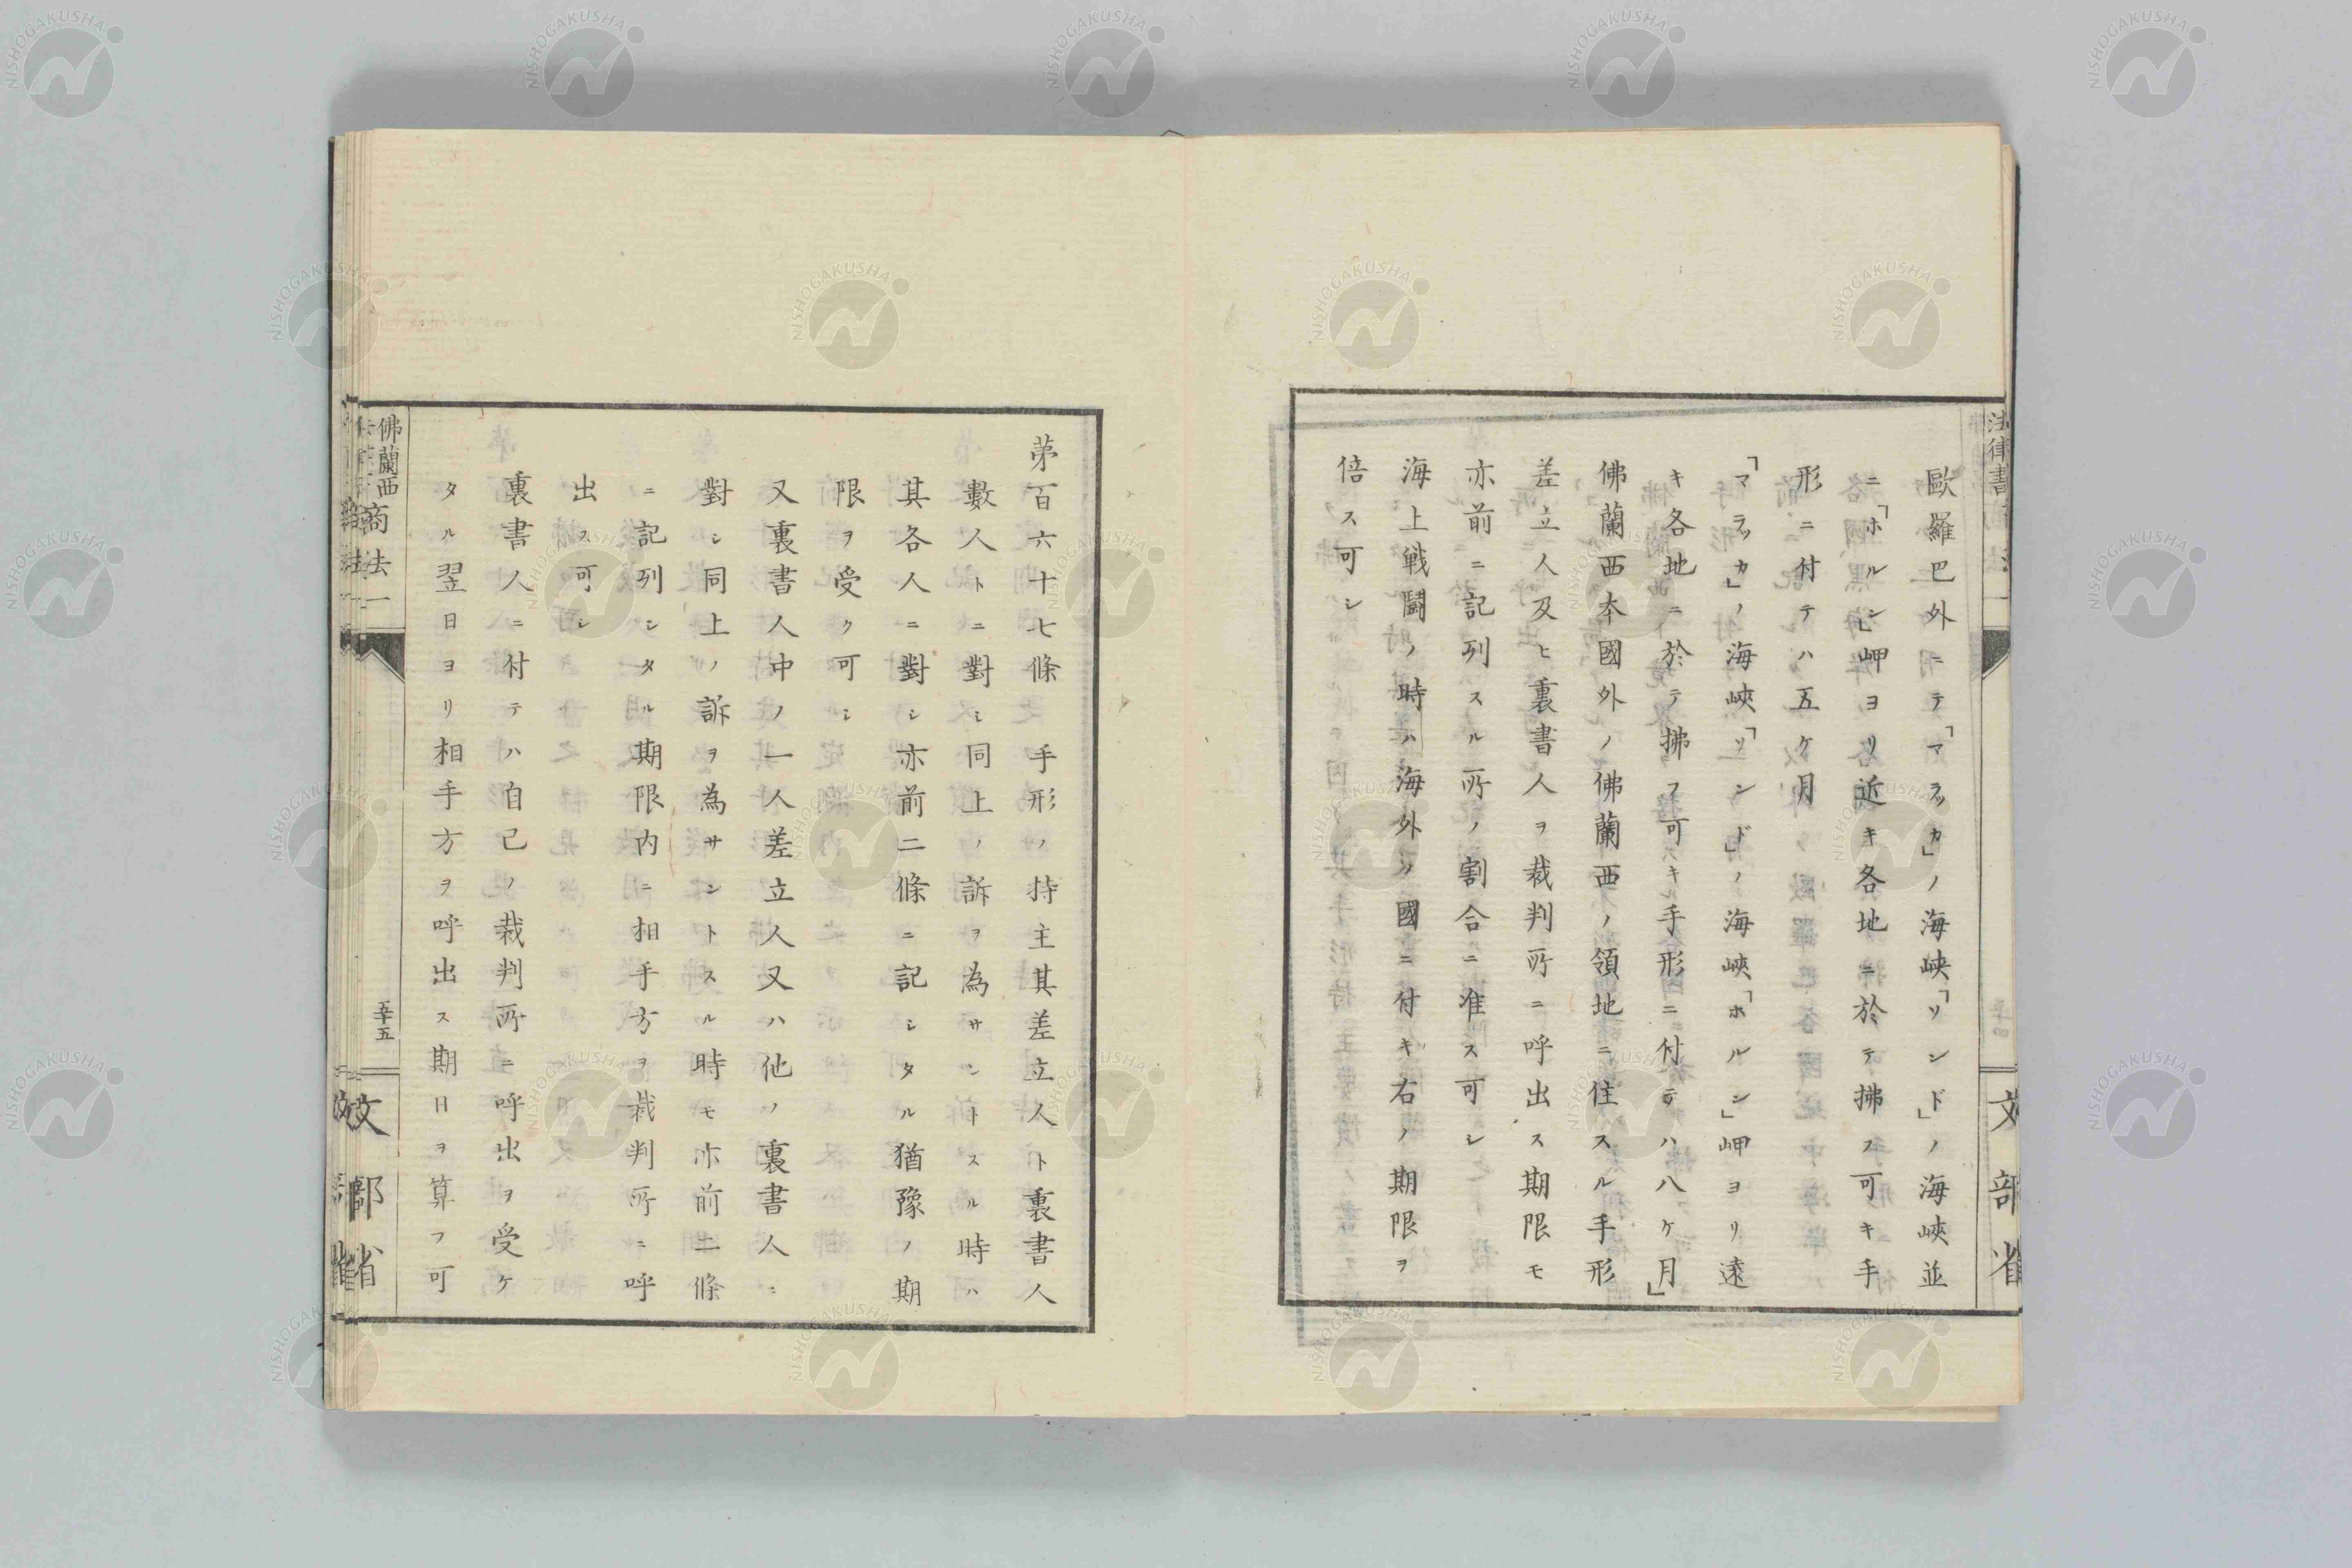 歐羅巴外ニテ「マラッカ」ノ海峽「ソンド」ノ海峽並
ニ「ホルン」岬ヨリ近キ各地ニ於テ拂フ可キ手
形ニ付テハ五ケ月
「マラッカ」ノ海峽「ソンド」ノ海峽「ホルン」岬ヨリ遠
キ各地ニ於テ拂フ可キ手形ニ付テハ八ケ月」
佛蘭西本國外ノ佛蘭西ノ領地ニ住スル手形
差立人及ヒ裏書人ヲ裁判所ニ呼出ス期限モ
亦前ニ記列スル所ノ割合ニ准ス可シ
海上戦鬪ノ時ハ海外ノ國ニ付キ右ノ期限ヲ
倍ス可シ
第百六十七條 手形ノ持主其差立人ト裏書人
數人トニ對シ同上ノ訴ヲ為サントスル時ハ
其各人ニ對シ亦前二條ニ記シタル猶豫ノ期
限ヲ受ク可シ
又裏書人中ノ一人差立人又ハ他ノ裏書人ニ
對シ同上ノ訴ヲ為サントスル時モ亦前二條
ニ記列シタル期限内ニ相手方ヲ裁判所ニ呼
出ス可シ
裏書人ニ付テハ自己ノ裁判所ニ呼出ヲ受ケ
タル翌日ヨリ相手方ヲ呼出ス期日ヲ算フ可
佛蘭西商法一
五十五
文部省